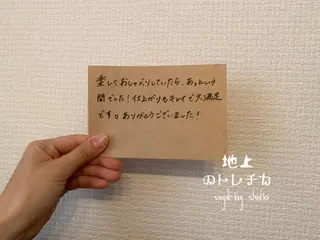 楽しくおしゃべりしていたら、あっという
間でした！仕上がりもキレイで大満足
です。ありがとうございました！
地上
のトレチカ